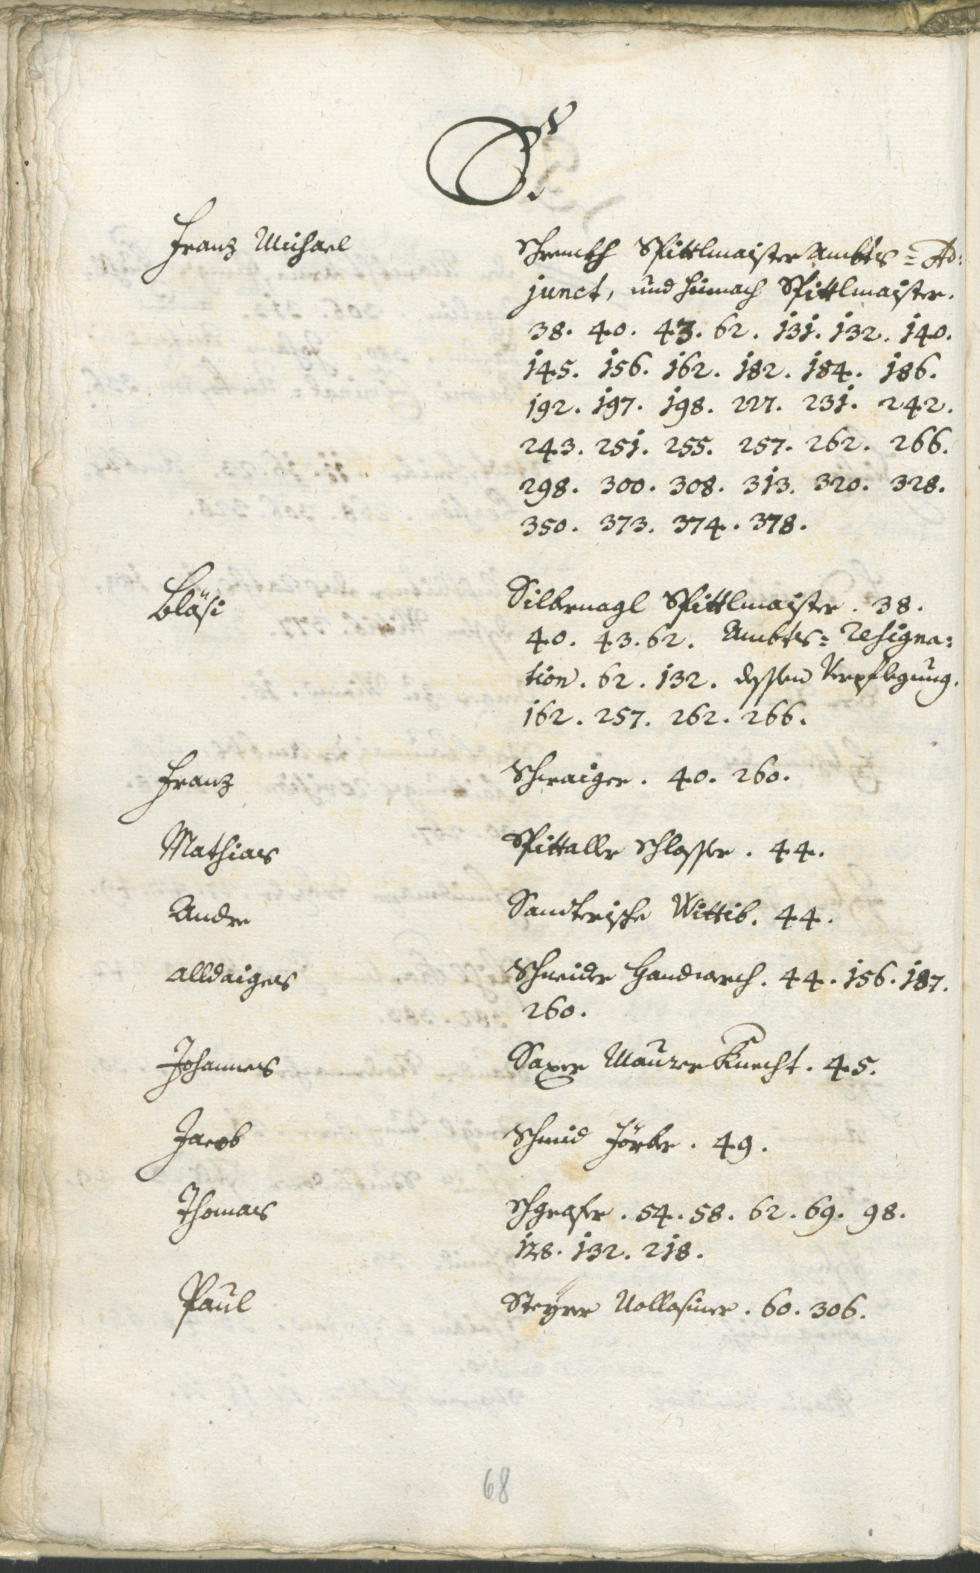 S.
Franz Michael Schrenkh Spittlmaister Ambts=Ad:
junct, und hinnach Spittlmaister.
38. 40. 43. 62. 131. 132. 140.
145. 156. 162. 182. 184. 186.
192. 197. 198. 227. 231. 242.
243. 251. 255. 257. 262. 266.
298. 300. 308. 313. 320. 328.
350. 373. 374. 378.
Bläsi Silbernagl Spittlmaister. 38.
40. 43. 62. Ambts=Resigna:
tion. 62. 132. dessen Verpflegung.
162. 257. 262. 266.
Franz Schwaiger. 40. 260.
Mathias Spittaller Schlosser. 44.
Andre Wittib. 44.
alldaiges Schneider Handwerch. 44. 156. 187.
260.
Johannes Saxer Maurer Knecht. 45.
Jacob Schmid Förber. 49.
Thomas 54. 58. 62. 69. 98.
128. 132. 218.
Paul Steyrer 60. 306.
68